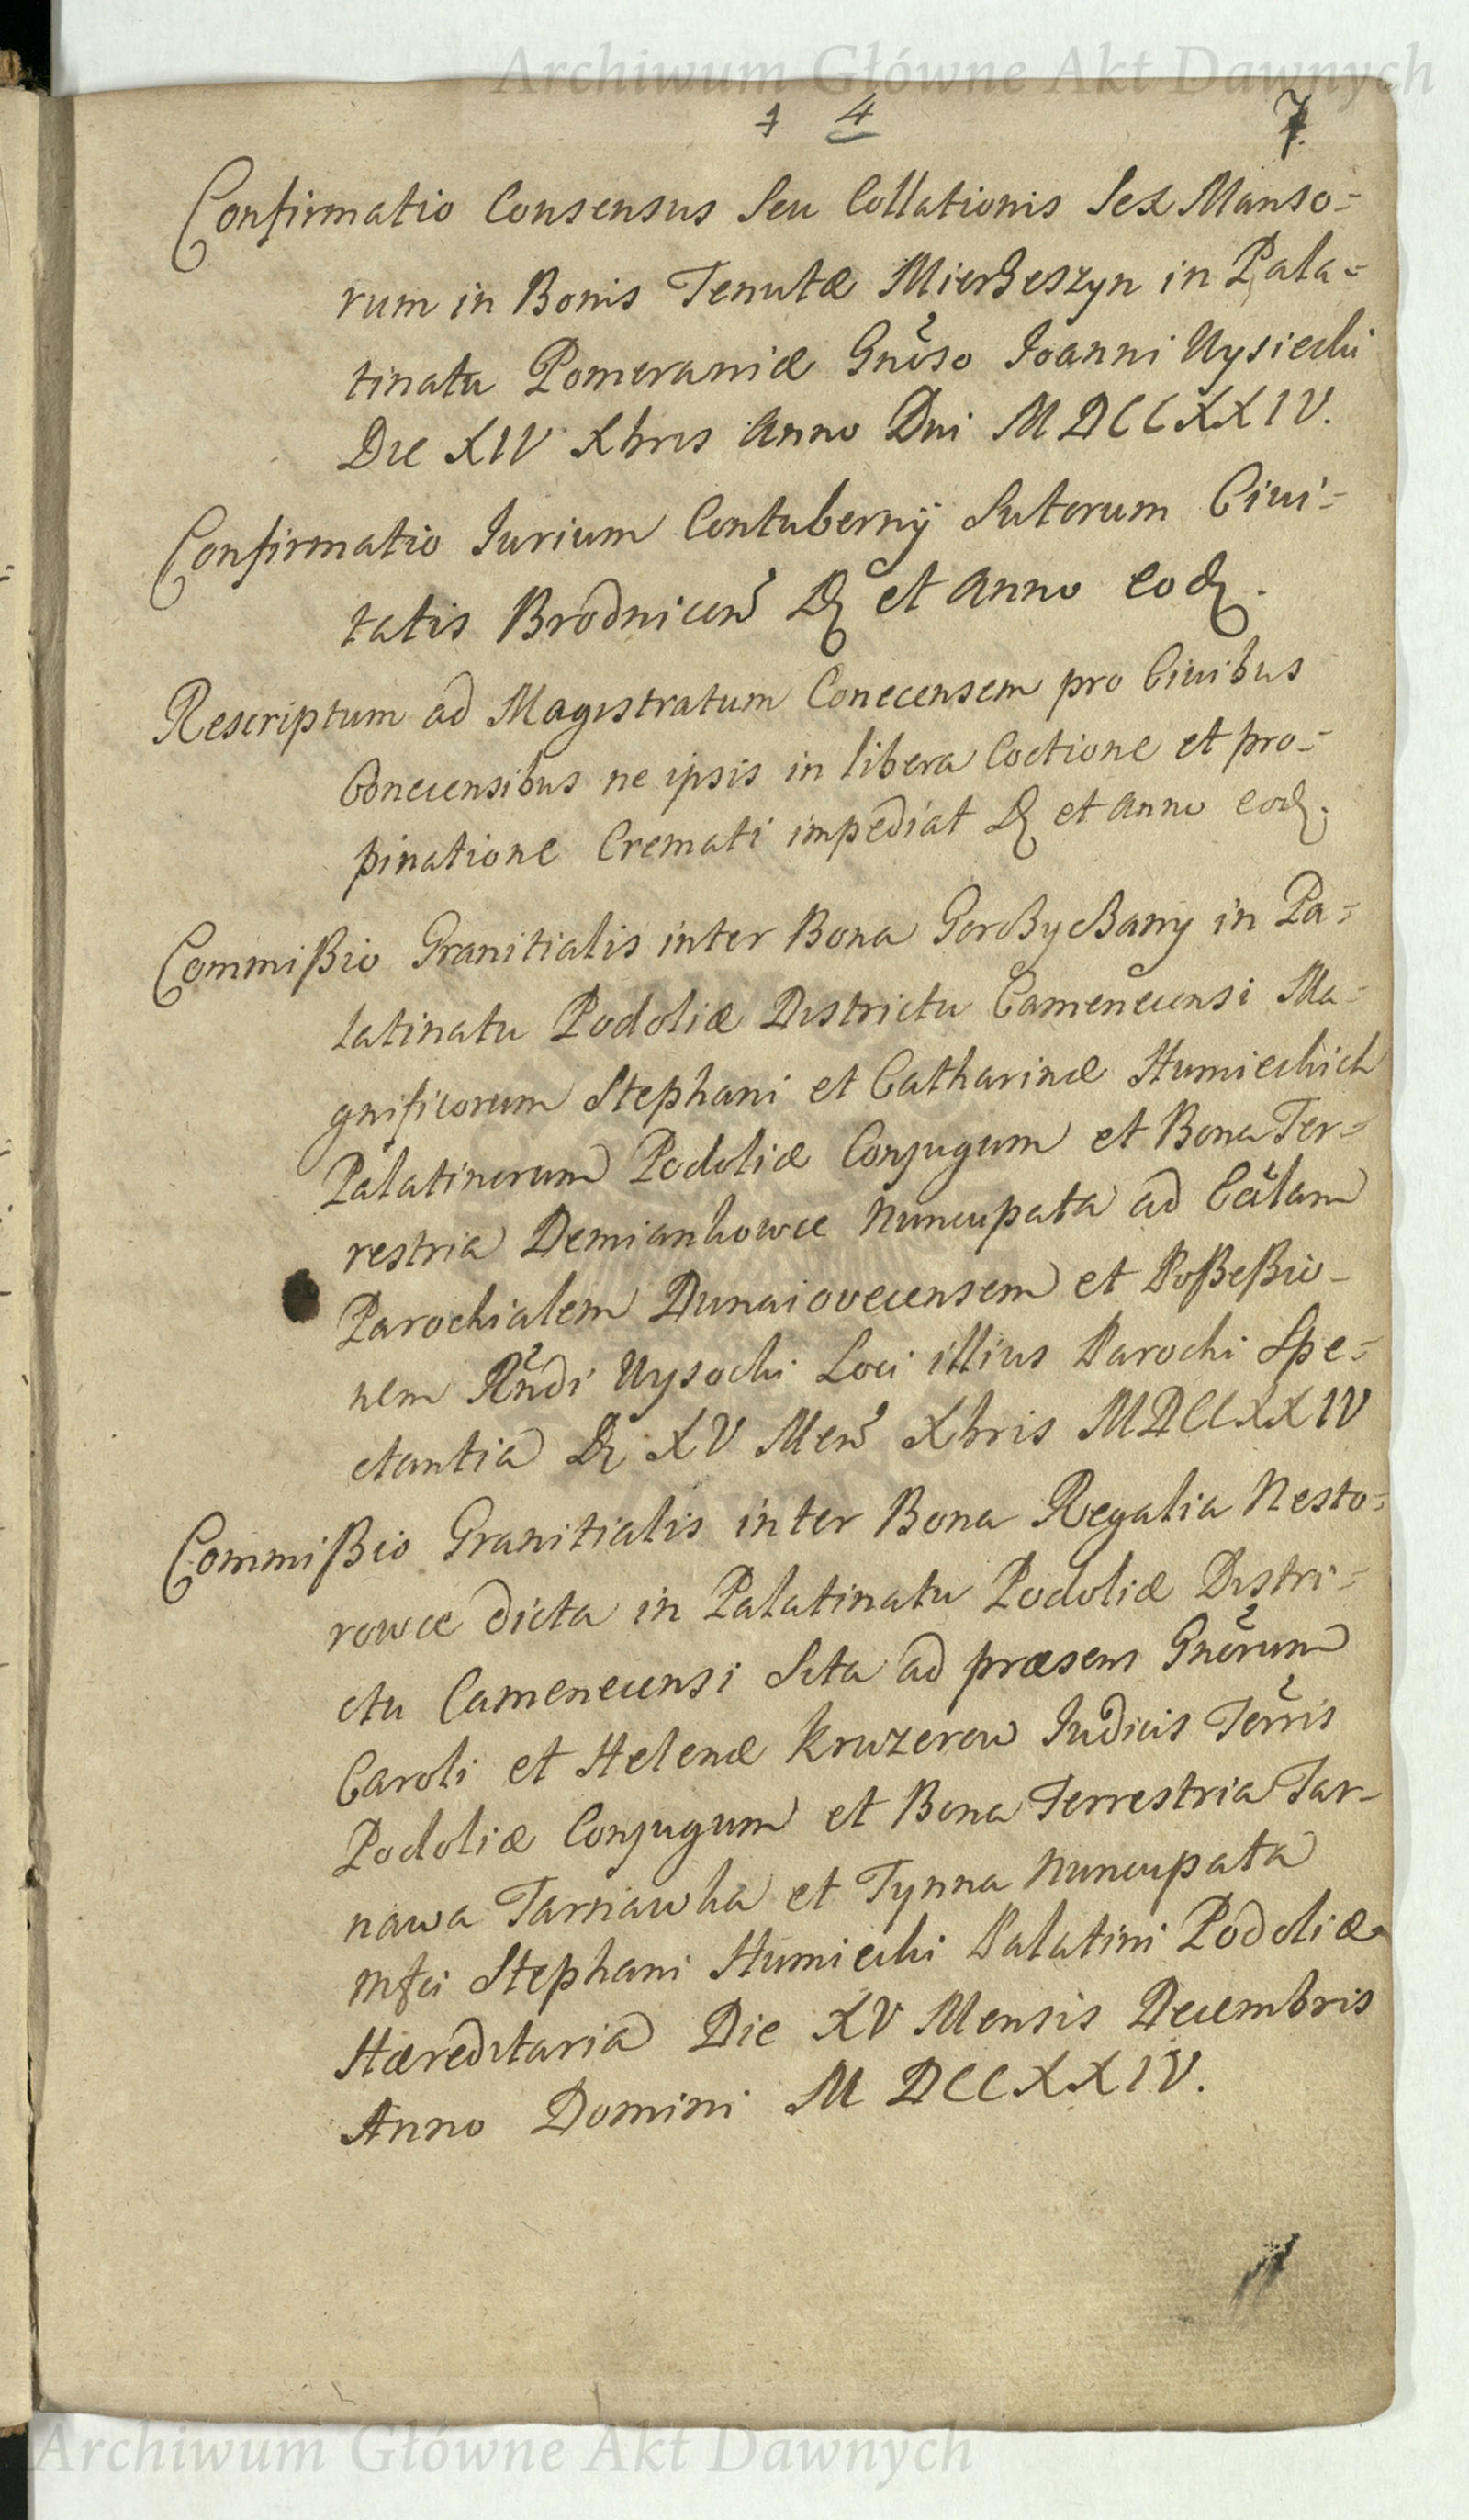 Archiwum Główne Akt Dawnych
7 4 7.
Confirmatio Consensus Seu Collationis Sex Manso=
rum in Bonis Tenutæ Mierzeszyn in Pala=
tinatu Pomeraniæ Gnŏso Joanni Wysiecki
Die XIV Xbris Anno Dni MDCCXXIV.
Confirmatio Jurium Contubernÿ Sutorum Civi=
tatis Brodnicen̄ D et Anno eod.
Rescriptum ad Magistratum Conecensem pro Civibus
Conecensibus ne ipsis in libera Coctione et pro=
pinatione Cremati impediat D et Anno eod.
Commißio Granitialis inter Bona in Pa=
latinatu Podoliæ Districtu Camenecensi Ma=
gnificorum Stephani et Catharinæ Humieckich
Palatinorum Podoliæ Conjugum et Bona Ter=
restria Demiankowce Nuncupata ad Ecclam
Parochialem Dunaiovecensem et Poßeßio=
nem Rn̄di Wysocki Loci illius Parochi Spe=
ctantia D XV Men̄ Xbris MDCCXXIV
Commißio Granitialis inter Bona Regalia Nesto=
rowce dicta in Palatinatu Podoliæ Distri=
ctu Camenecensi Sita ad præsens Gnōrum
Caroli et Helenæ Kruzerow Judicis Terris
Podoliæ Conjugum et Bona Terrestria Tar=
nawa Tarnawka et Tynna Nuncupata
Mfci Stephani Humiecki Palatini Podoliæ
Hæreditaria Die XV Mensis Decembris
Anno Domini MDCCXXIV.
Archiwum Główne Akt Dawnych